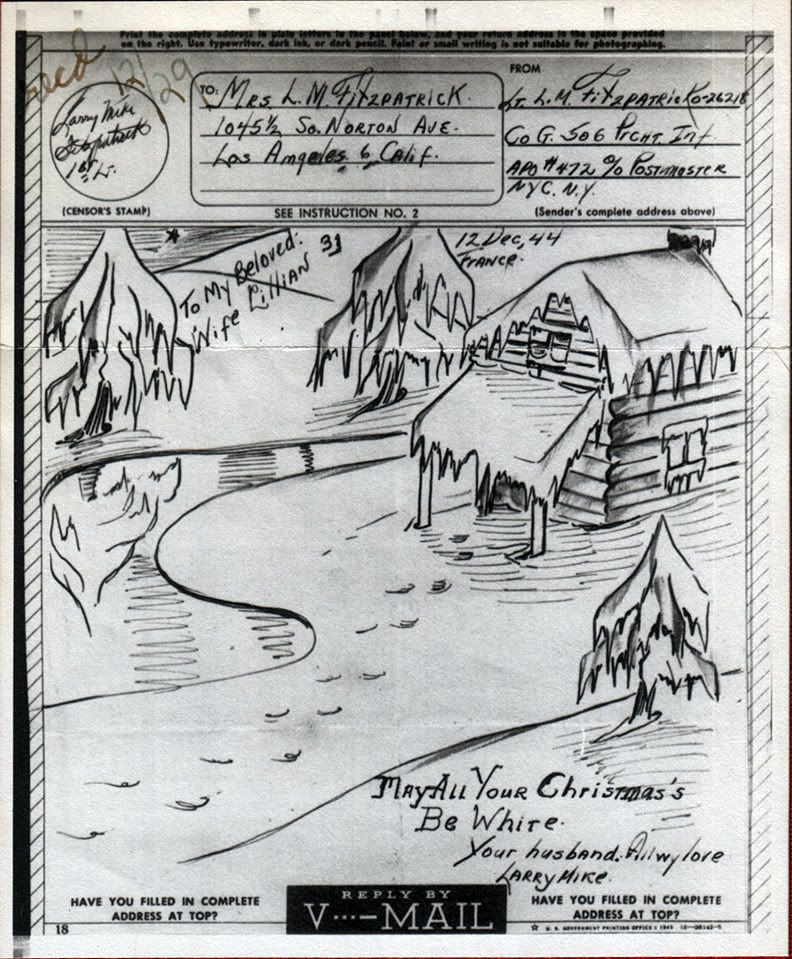 Print the complete address in plain letters in the panel below, and your return address in the space provided
on the right. Use typewriter, dark ink, or dark pencil. Faint or small writing is not suitable for photographing.
recd 12/29
Larry Mike
Fitzpatrick
1st Lt.
(CENSOR'S STAMP)
TO:
Mrs L. M. Fitzpatrick
1045½ So. Norton Ave.
Los Angeles 6, Calif.
SEE INSTRUCTION NO. 2
FROM
Lt. L. M. Fitzpatrick O-26218
Co G. 506 Prcht. Inf.
APO #472 % Postmaster
NYC. N.Y.
(Sender's complete address above)
To My Beloved:
Wife Lillian
31
12 Dec, 44
France.
May All Your Christmas's
Be White.
Your husband. All my love
Larry Mike.
HAVE YOU FILLED IN COMPLETE
ADDRESS AT TOP?
REPLY BY
V···—MAIL
HAVE YOU FILLED IN COMPLETE
ADDRESS AT TOP?
18
☆ U. S. GOVERNMENT PRINTING OFFICE : 1943